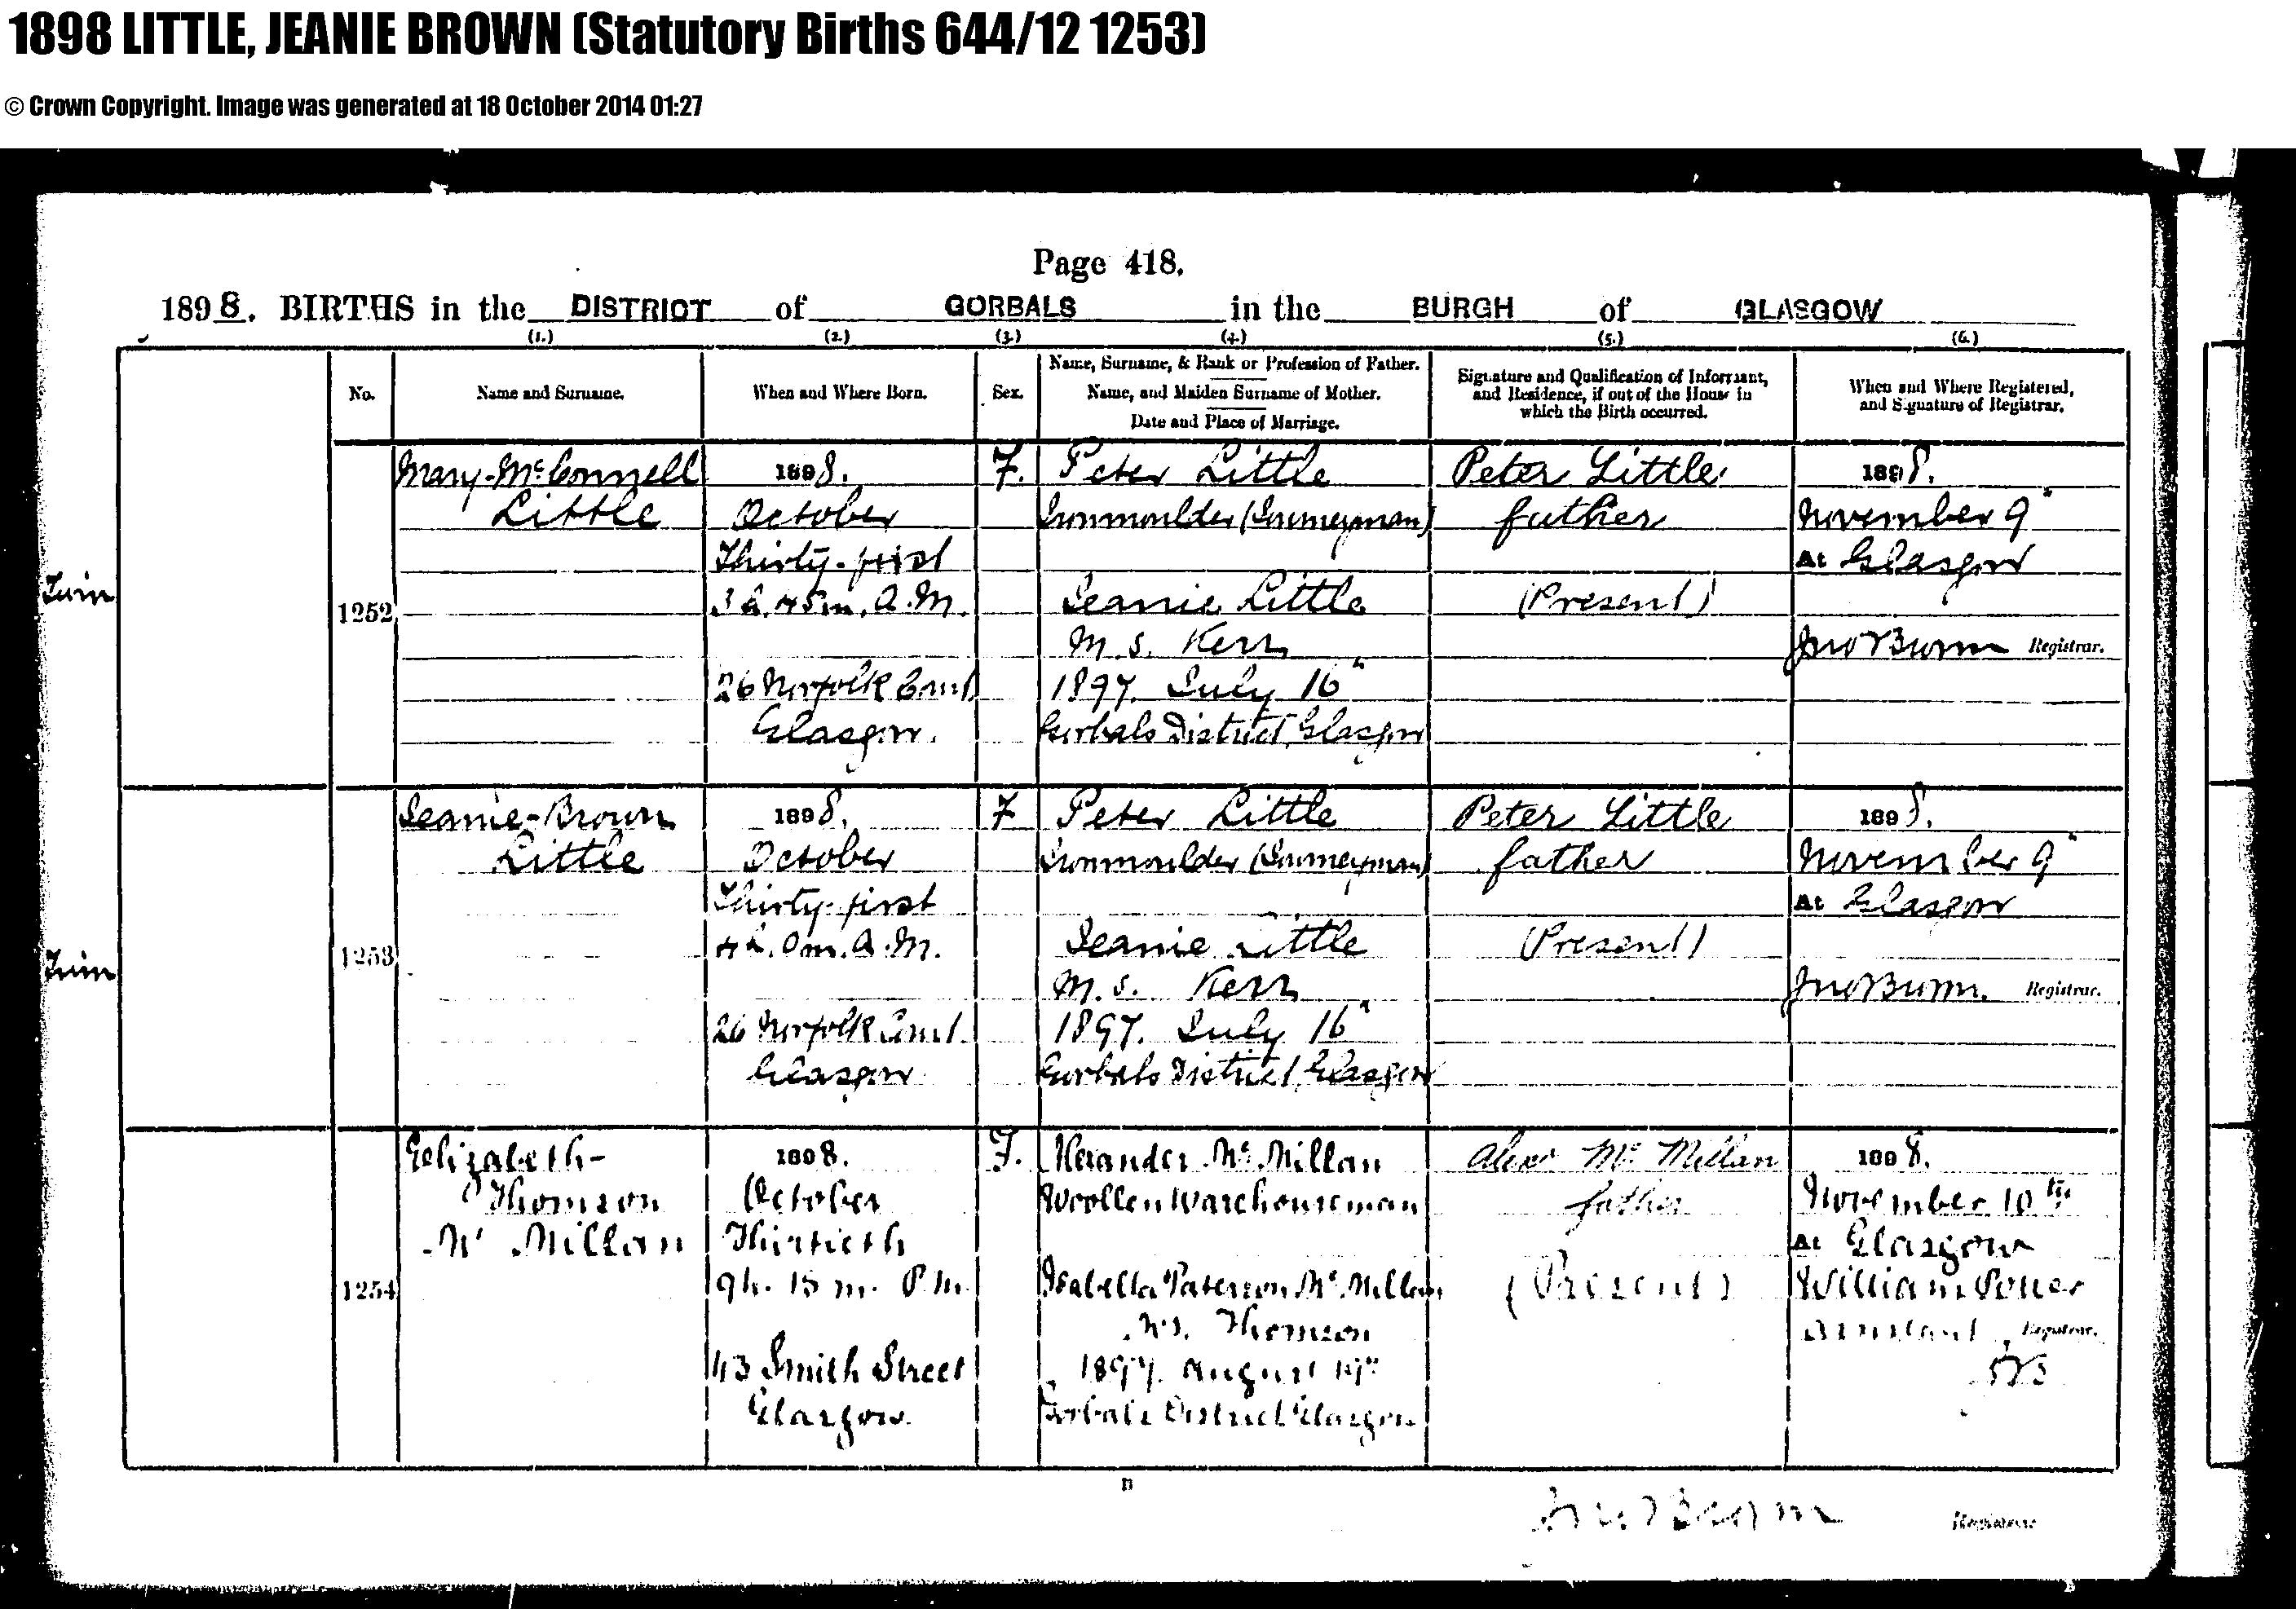 1898 LITTLE, JEANIE BROWN (Statutory Births 644/12 1253)
© Crown Copyright. Image was generated at 18 October 2014 01:27
Page 418.
1898. BIRTHS in the DISTRICT of GORBALS in the BURGH of GLASGOW
(1.) (2.) (3.) (4.) (5.) (6.)
No.
Name and Surname.
When and Where Born.
Sex.
Name, Surname, & Rank or Profession of Father.
Name, and Maiden Surname of Mother.
Date and Place of Marriage.
Signature and Qualification of Informant,
and Residence, if out of the House in
which the Birth occurred.
When and Where Registered,
and Signature of Registrar.
Twin
1252
Mary-McConnell
Little
1898.
October
Thirty-first
3h. 45m. A.M.
26 Norfolk Court
Glasgow.
F.
Peter Little
Ironmoulder (Journeyman)
Jeanie Little
M.S. Kerr
1897. July 16"
Gorbals District, Glasgow
Peter Little
father
(Present)
1898.
November 9"
At Glasgow
Jno Burm Registrar.
Twin
1253
Jeanie-Brown
Little
1898.
October
Thirty-first
4h. 0m. A.M.
26 Norfolk Court
Glasgow
F
Peter Little
Ironmoulder (Journeyman)
Jeanie Little
M.S. Kerr
1897. July 16"
Gorbals District, Glasgow
Peter Little
father
(Present)
1898.
November 9"
At Glasgow
Jno Burm. Registrar.
1254
Elizabeth-
Thomson
Mc Millan
1898.
October
Thirtieth
9h. 15m. P.M.
43 Smith Street
Glasgow.
F.
Alexander Mc Millan
Woollen Warehouseman
Isabella Paterson Mc Millan
M.S. Thomson
1897. August
Gorbals District Glasgow
Alexr Mc Millan
father
(Present)
1898.
November 10th
At Glasgow
William
Assistant Registrar.
Registrar